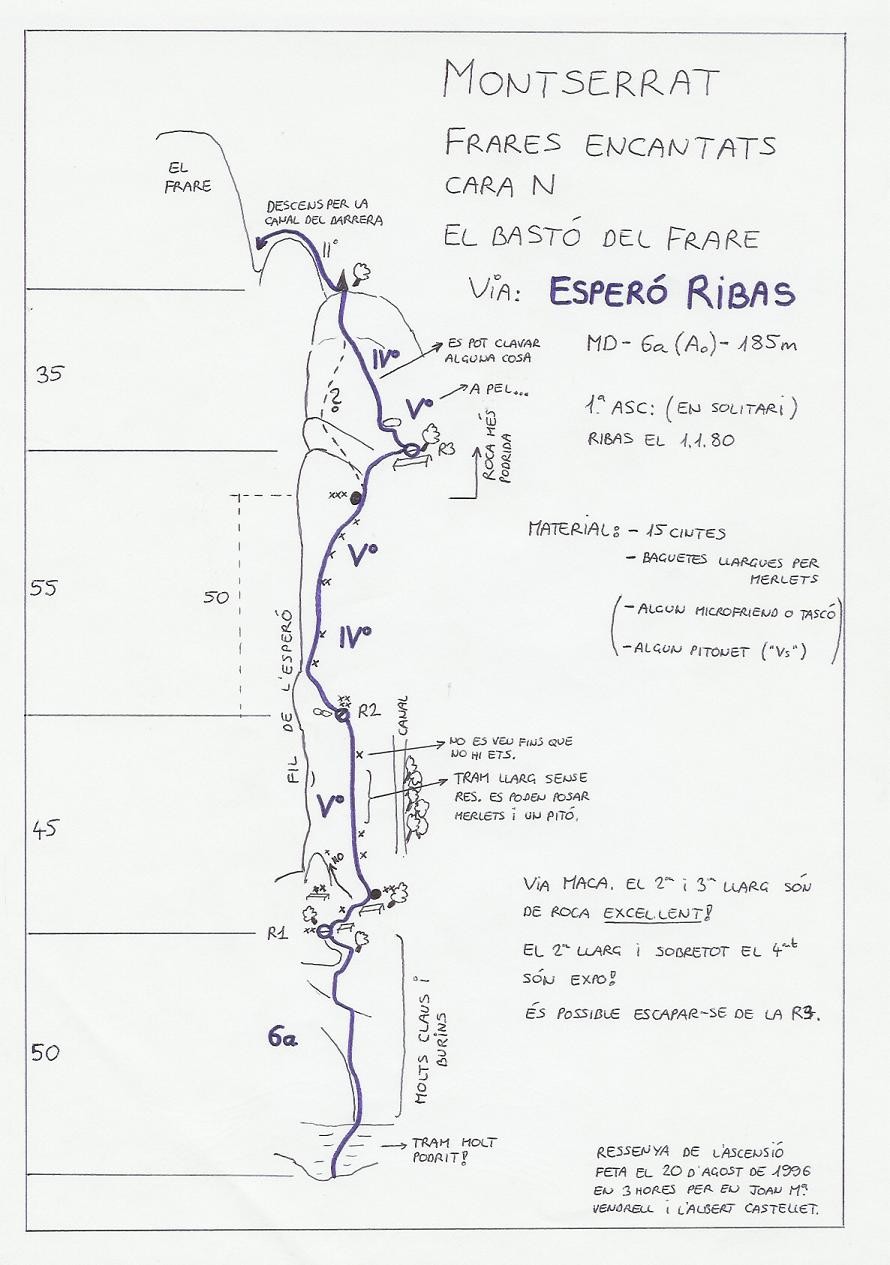 MONTSERRAT
FRARES ENCANTATS
CARA N
EL BASTÓ DEL FRARE
VIA: ESPERÓ RIBAS
MD - 6a (A₀) - 185m
1ª ASC: (EN SOLITARI)
RIBAS EL 1.1.80
MATERIAL: - 15 CINTES
- BAGUETES LLARGUES PER
MERLETS
(- ALGUN MICROFRIEND O TASCÓ
- ALGUN PITONET ("Vs"))
EL
FRARE
DESCENS PER LA
CANAL DEL DARRERA
II°
35
IV°
ES POT CLAVAR
ALGUNA COSA
?
V°
A PEL...
R3
ROCA MÉS
PODRIDA
xxx
V°
55
50
IV°
FIL DE L'ESPERÓ
R2
CANAL
NO ES VEU FINS QUE
NO HI ETS.
TRAM LLARG SENSE
RES. ES PODEN POSAR
MERLETS I UN PITÓ.
V°
45
NO
R1
VIA MACA. EL 2ⁿ i 3ⁿ LLARG SÓN
DE ROCA EXCEL.LENT!
EL 2ⁿ LLARG I SOBRETOT EL 4ᵃᵗ
SÓN EXPO!
ÉS POSSIBLE ESCAPAR-SE DE LA R3.
6a
50
MOLTS CLAUS I
BURINS
TRAM MOLT
PODRIT!
RESSENYA DE L'ASCENSIÓ
FETA EL 20 D'AGOST DE 1996
EN 3 HORES PER EN JOAN Mª
VENDRELL I L'ALBERT CASTELLET.